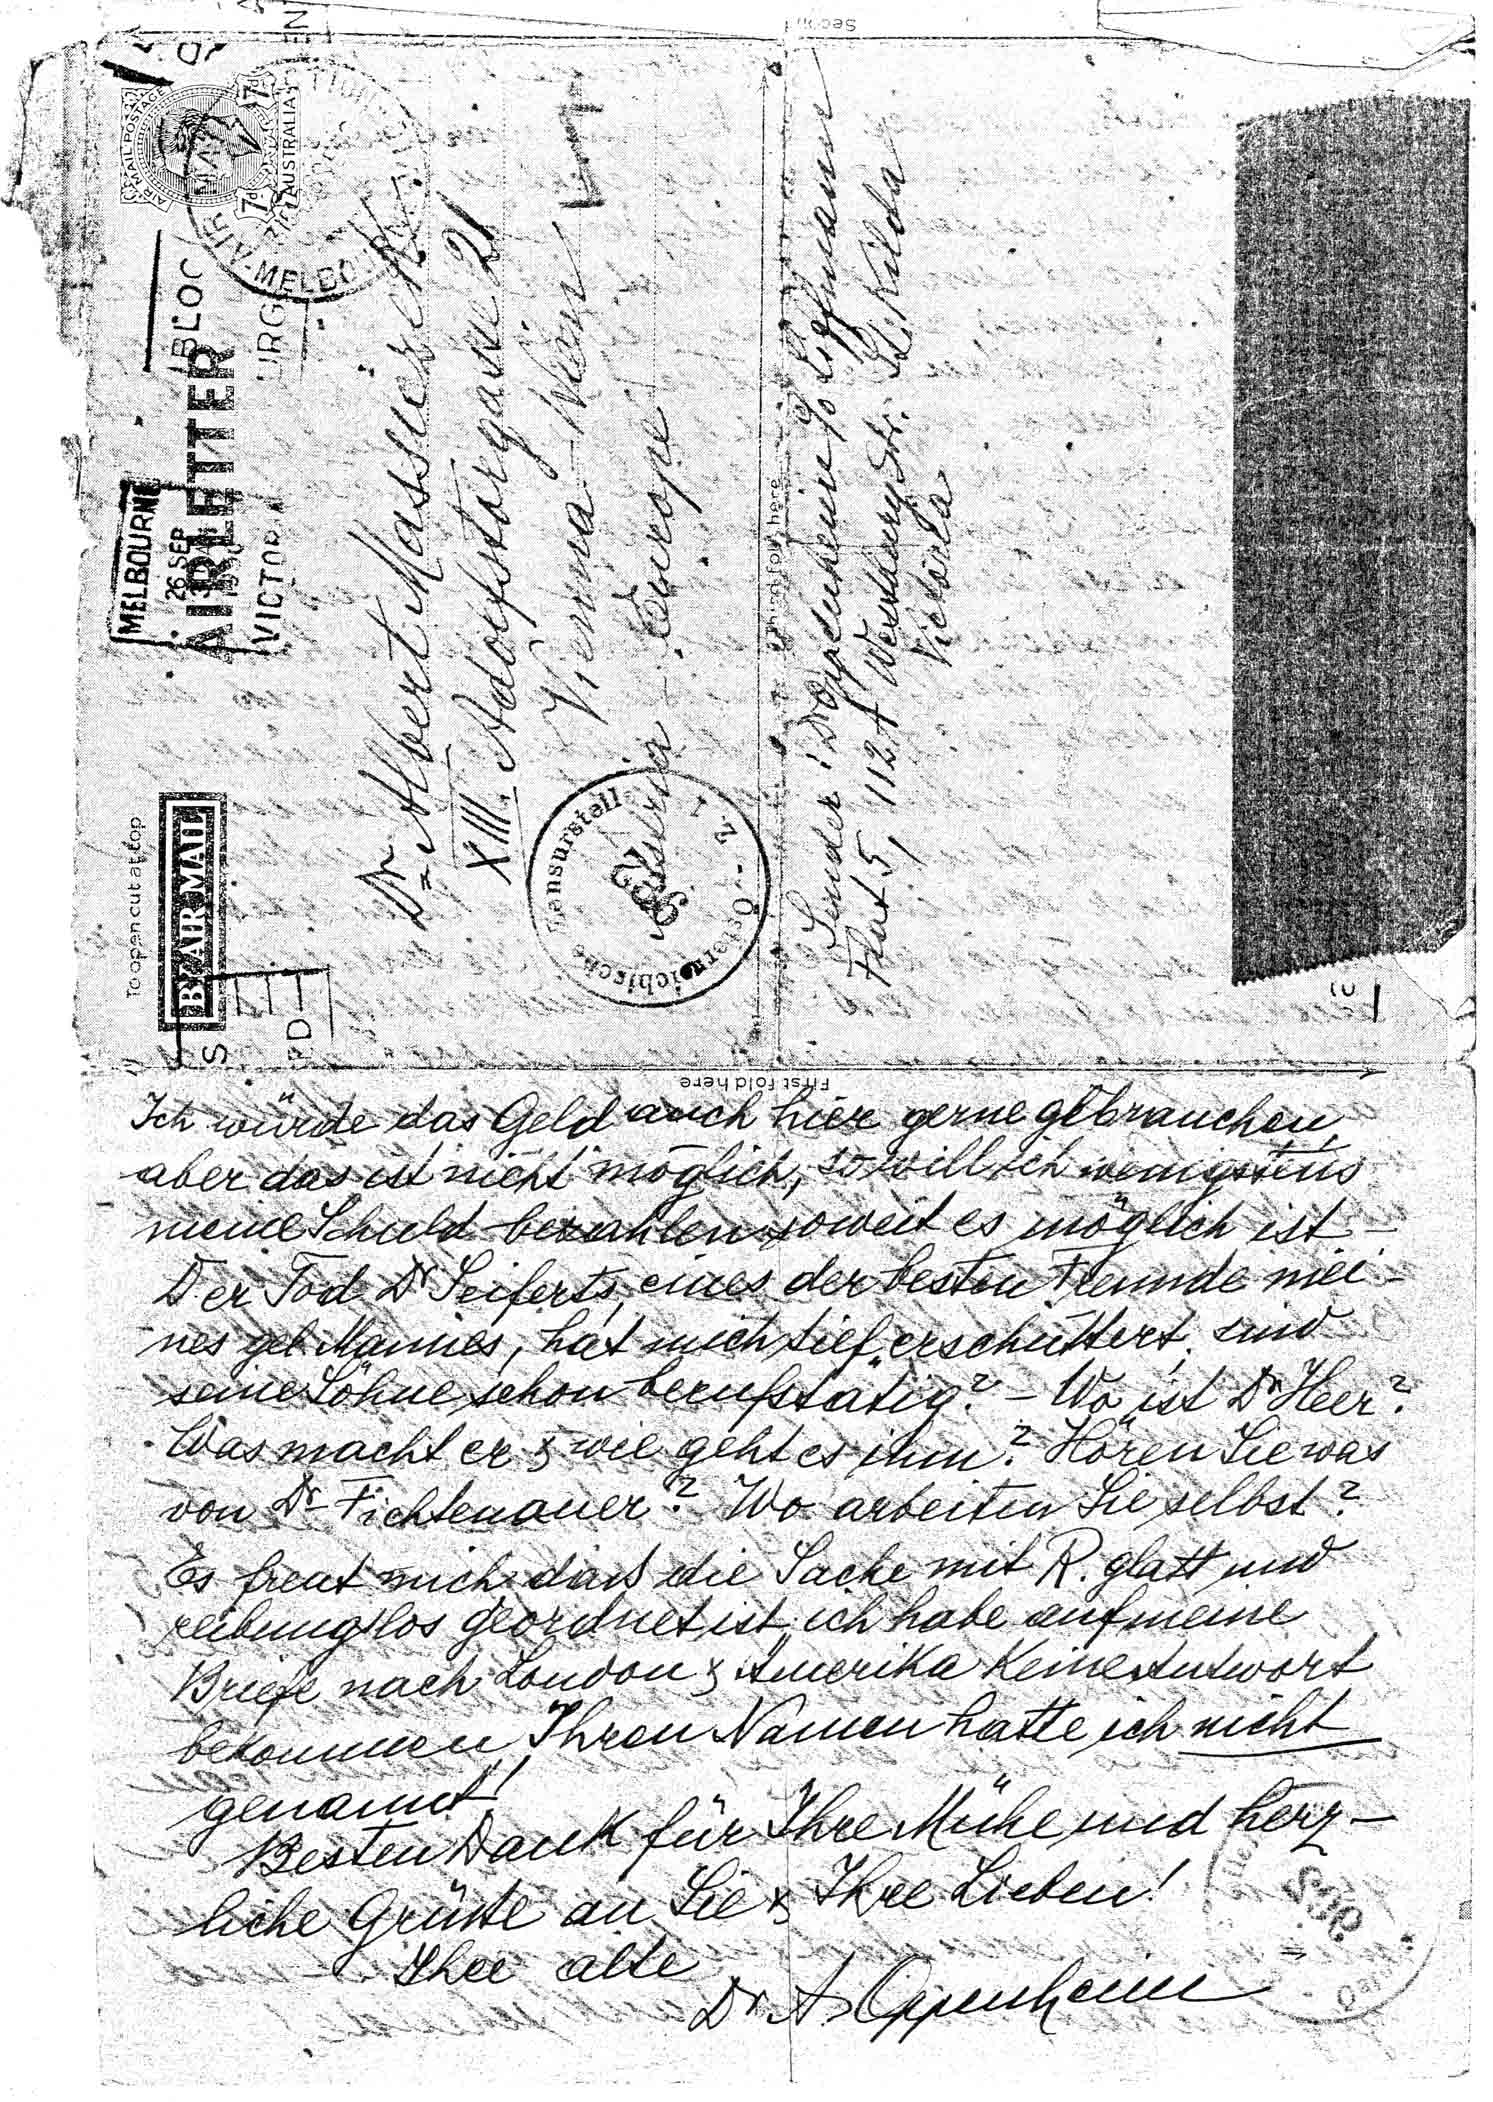 Second
AIR MAIL POSTAGE
7d 7d
AUSTRALIA
AIR MAIL
MELBOURNE
MELBOURNE
26 SEP
AIR LETTER
VICTORIA
To open cut at top
BY AIR MAIL
Dr Albert Massiczek
XIII. Adolfstorgasse 21
Vienna - Wien
Austria - Europe
Österreichische Zensurstelle
Third fold here
Sender: Dr Oppenheim c/o Liefmann
Flat 5, 112 A Westbury Str. St. Kilda
Victoria
First fold here
Ich würde das Geld auch hier gerne gebrauchen,
aber das ist nicht möglich, so will ich wenigstens
meine Schuld bezahlen soweit es möglich ist –
Der Tod Dr Seiferts, eines der besten Freunde mei-
nes gel Mannes, hat mich tief erschüttert, sind
seine Söhne schon berufstätig? – Wo ist Dr Heer?
Was macht er & wie geht es ihm? Hören Sie was
von Dr Fichtenauer? Wo arbeiten Sie selbst?
Es freut mich dass die Sache mit R. glatt und
reibungslos geordnet ist, ich habe auf meine
Briefe nach London & Amerika keine Antwort
bekommen, Ihren Namen hatte ich nicht
genannt!
Besten Dank für Ihre Mühe und herz-
liche Grüsse an Sie & Ihre Lieben!
Ihre alte
Dr A. Oppenheim